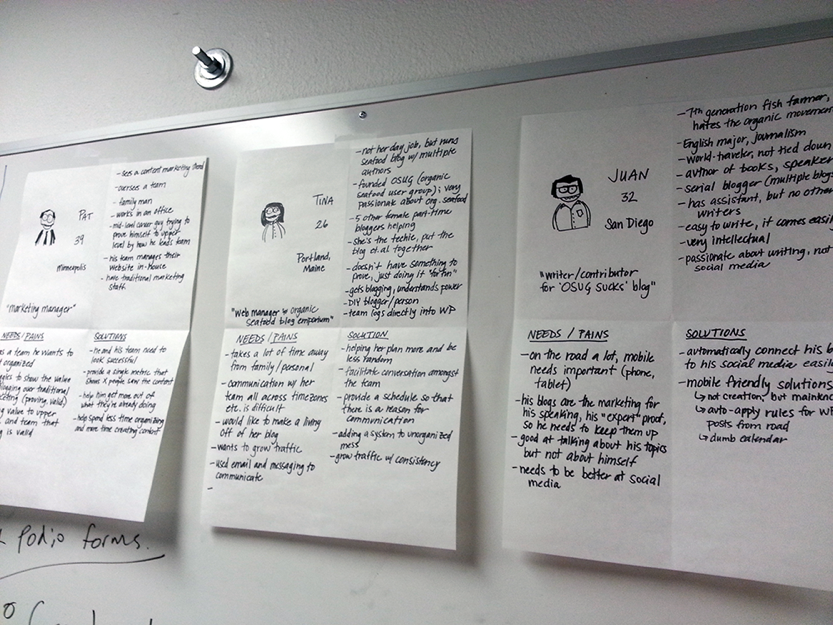 PAT
39
Minneapolis
"marketing manager"
- sees a content marketing need
- oversees a team
- family man
- works in an office
- mid-level career guy trying to
prove himself to upper
level by how he leads team
- his team manages their
website in-house
- have traditional marketing
staff
NEEDS/PAINS
a team he wants to
organized
to show the value
blogging over traditional
marketing (proving, valid)
value to upper
and team that
is valid
SOLUTIONS
- he and his team need to
look successful
- provide a single metric that
shows X people saw the content
- help him get more out of
what they're already doing
- help spend less time organizing
and more time creating content
TINA
26
Portland,
Maine
"Web manager to organic
seafood blog emporium"
- not her day job, but runs
seafood blog w/ multiple
authors
- founded OSUG (organic
seafood user group); very
passionate about org. seafood
- 5 other female part-time
bloggers helping
- she's the techie, put the
blog et. al together
- doesn't have something to
prove, just doing it "for fun"
- gets blogging, understands power
- DIY blogger/person
- team logs directly into WP
NEEDS/PAINS
- takes a lot of time away
from family/personal
- communication w/ her
team all across timezones
etc. is difficult
- would like to make a living
off of her blog
- wants to grow traffic
- used email and messaging to
communicate
-
SOLUTION
- helping her plan more and be
less random
- facilitate conversation amongst
the team
- provide a schedule so that
there is a reason for
communication
- adding a system to unorganized
mess
- grow traffic w/ consistency
JUAN
32
San Diego
"writer/contributor
for 'OSUG SUCKS' blog"
- 7th generation fish farmer,
hates the organic movement
- English major, journalism
- world-traveler, not tied down
- author of books, speaker
- serial blogger (multiple blogs
- has assistant, but no other
writers
- easy to write, it comes easily
- very intellectual
- passionate about writing, not
social media
NEEDS / PAINS
- on the road a lot, mobile
needs important (phone,
tablet)
- his blogs are the marketing for
his speaking, his "expert" proof,
so he needs to keep them up
- good at talking about his topics
but not about himself
- needs to be better at social
media
SOLUTIONS
- automatically connect his b
to his social media easil
- mobile friendly solutions
↳ not creation, but
↳ auto-apply rules for WP
posts from road
↳ dumb calendar
Podio forms.